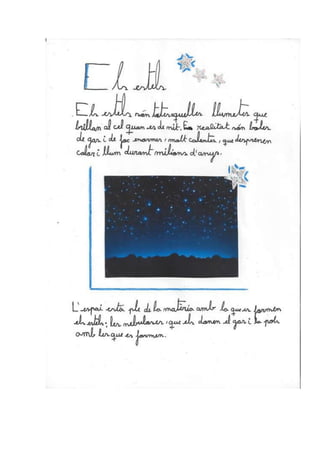 Els estels
Els estels són totes aquelles llumetes que
brillan al cel quan es de nit. En realitat són boles
de gas i de foc enormes i molt calentes, que desprenen
calor i llum durant milions d'anys.
L'espai està ple de la matèria amb la que es formen
els estels; les nebuloses, que els donen el gas i la pols
amb les que es formen.